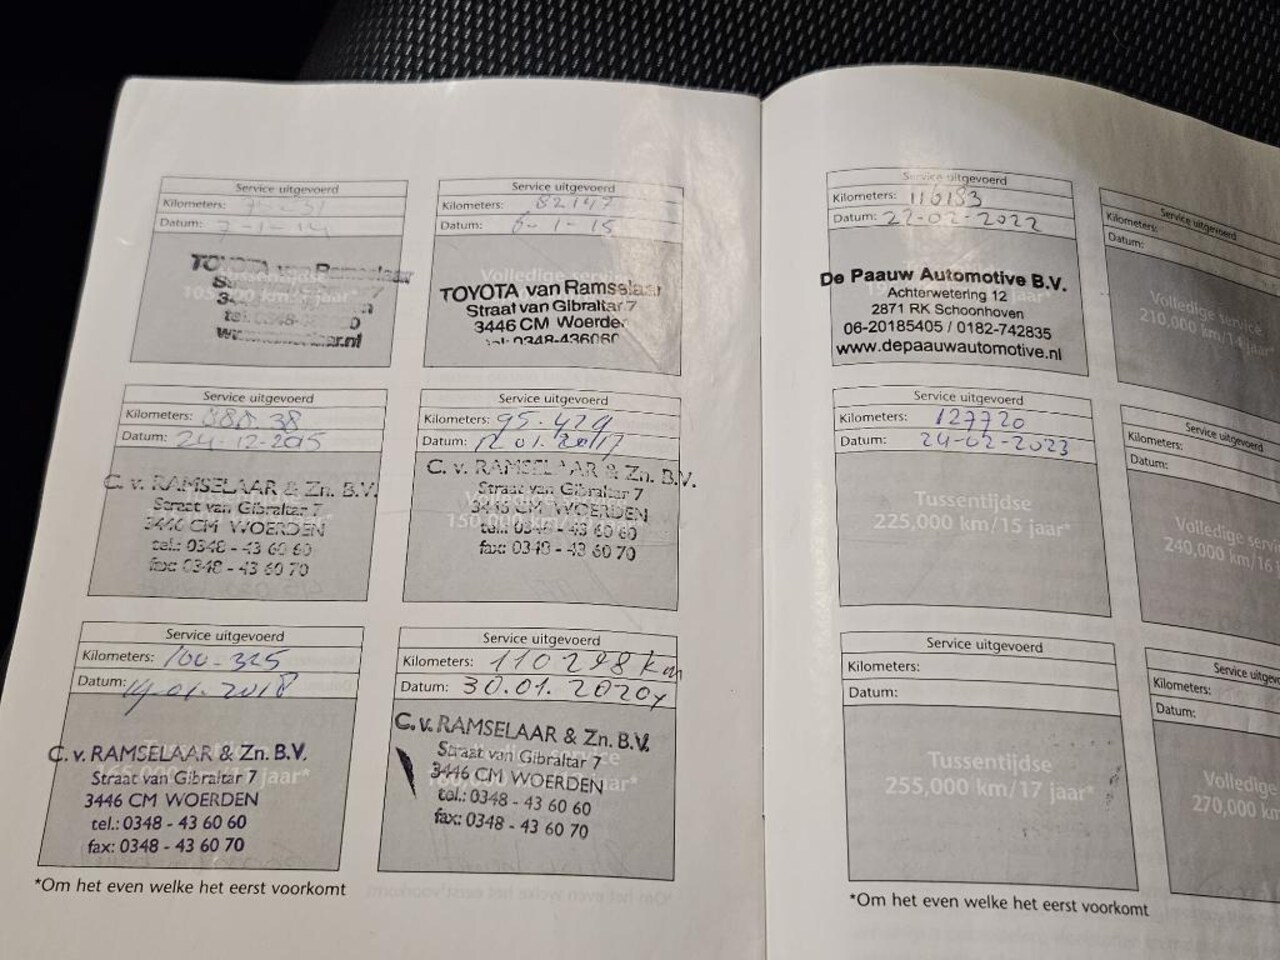 Service uitgevoerd
Kilometers:
Datum: 7-1-14
TOYOTA van Ramselaar
Tussentijdse
105,000 km/ jaar*
Service uitgevoerd
Kilometers: 82147
Datum: 6-1-15
Volledige service
TOYOTA van Ramselaar
Straat van Gibraltar 7
3446 CM Woerden
tel. 0348-436060
Service uitgevoerd
Kilometers: 088.38
Datum: 24-12-2015
C. v. RAMSELAAR & Zn. B.V.
Straat van Gibraltar 7
3446 CM WOERDEN
tel.: 0348 - 43 60 60
fax: 0348 - 43 60 70
Service uitgevoerd
Kilometers: 95.429
Datum: 12.01.2017
C. v. RAMSELAAR & Zn. B.V.
Straat van Gibraltar 7
Volledige service
3446 CM WOERDEN
150,000 km/ jaar*
tel.: 0348 - 43 60 60
fax: 0348 - 43 60 70
Service uitgevoerd
Kilometers: 100-325
Datum: 14-01-2018
C. v. RAMSELAAR & Zn. B.V.
Straat van Gibraltar 7
3446 CM WOERDEN
tel.: 0348 - 43 60 60
fax: 0348 - 43 60 70
Service uitgevoerd
Kilometers: 110298 km
Datum: 30.01.2020
C. v. RAMSELAAR & Zn. B.V.
Straat van Gibraltar 7
3446 CM WOERDEN
tel.: 0348 - 43 60 60
fax: 0348 - 43 60 70
*Om het even welke het eerst voorkomt
Service uitgevoerd
Kilometers: 116183
Datum: 22-02-2022
De Paauw Automotive B.V.
Achterwetering 12
2871 RK Schoonhoven
06-20185405 / 0182-742835
www.depaauwautomotive.nl
Service uitgevoerd
Kilometers:
Datum:
Volledige service
210,000 km/14 jaar*
Service uitgevoerd
Kilometers: 127720
Datum: 24-02-2023
Tussentijdse
225,000 km/15 jaar*
Service uitgevoerd
Kilometers:
Datum:
Volledige servi
240,000 km/16 j
Service uitgevoerd
Kilometers:
Datum:
Tussentijdse
255,000 km/17 jaar*
Service uitgevo
Kilometers:
Datum:
Volledige
270,000 km
*Om het even welke het eerst voorkomt